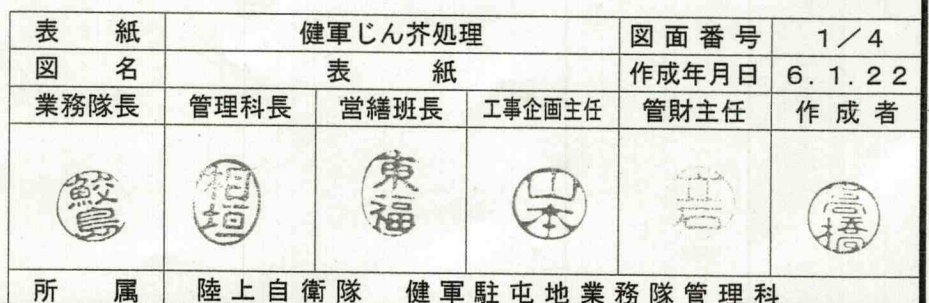 表 紙 健軍じん芥処理 図面番号 1/4
図 名 表 紙 作成年月日 6.1.22
業務隊長 管理科長 営繕班長 工事企画主任 管財主任 作成者
鮫島 相垣 東福 山本 高橋
所 属 陸上自衛隊 健軍駐屯地業務隊管理科